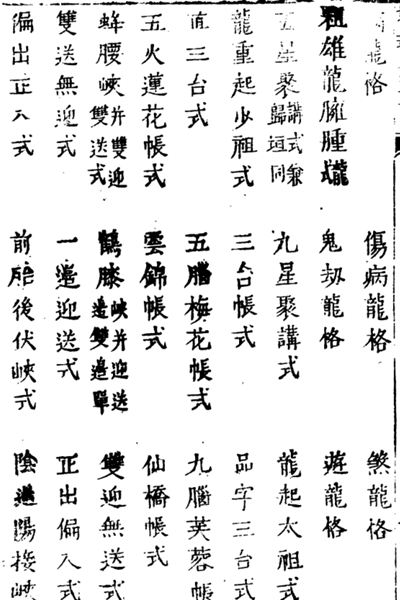 龍格 傷病龍格 煞龍格
粗雄龍臃腫 鬼劫龍格 遊龍格
五星聚講式兼歸垣同 九星聚講式 龍起太祖式
龍重起少祖式 三台帳式 品字三台式
直三台式 五腦梅花帳式 九腦芙蓉帳
五火蓮花帳式 雲錦帳式 仙橋帳式
蜂腰峽并雙迎雙送式 鶴膝峽并迎送邊雙邊單 雙迎無送式
雙送無迎式 一邊迎送式 正出偏入式
偏出正入式 前胎後伏峽式 陰過陽接峽